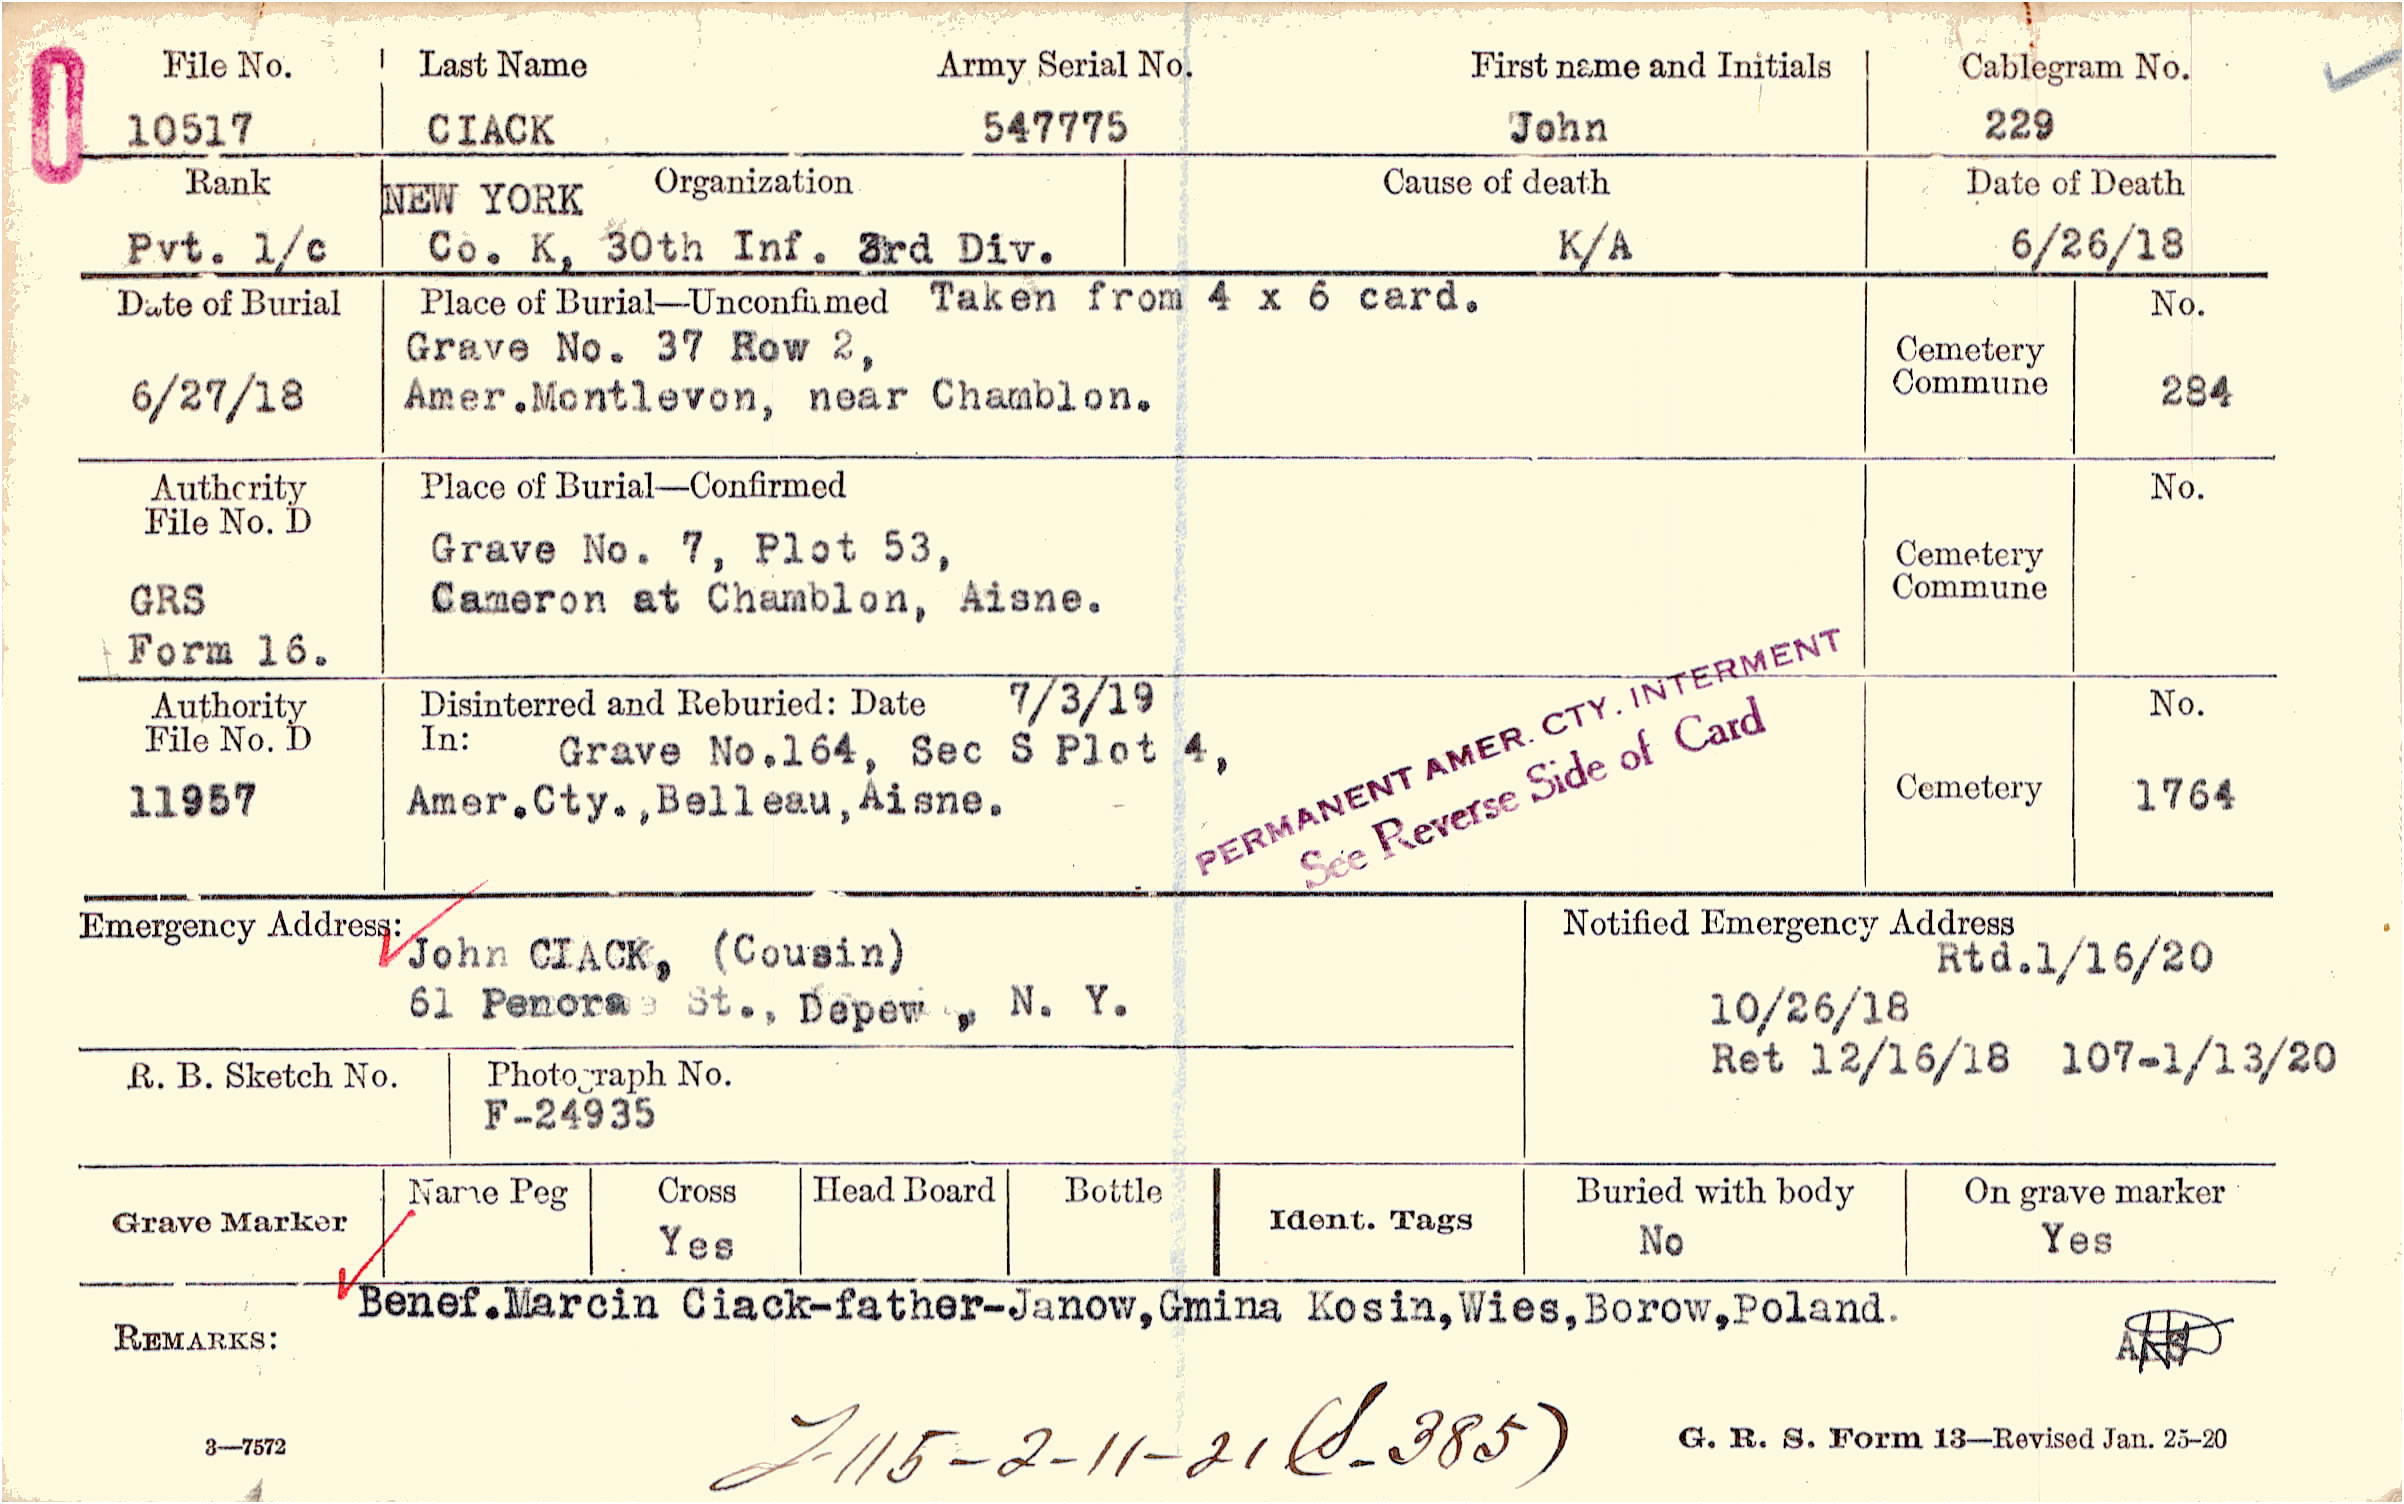 File No. Last Name Army Serial No. First name and Initials Cablegram No.
10517 CIACK 547775 John 229
Rank NEW YORK Organization Cause of death Date of Death
Pvt. 1/c Co. K, 30th Inf. 3rd Div. K/A 6/26/18
Date of Burial Place of Burial—Unconfirmed Taken from 4 x 6 card. No.
Grave No. 37 Row 2,
6/27/18 Amer.Montlevon, near Chamblon. Cemetery Commune 284
Authority File No. D Place of Burial—Confirmed No.
Grave No. 7, Plot 53,
GRS Cameron at Chamblon, Aisne. Cemetery Commune
Form 16.
Authority File No. D Disinterred and Reburied: Date 7/3/19 No.
In: Grave No.164, Sec S Plot 4,
11957 Amer.Cty.,Belleau,Aisne. Cemetery 1764
PERMANENT AMER. CTY. INTERMENT
See Reverse Side of Card
Emergency Address: Notified Emergency Address
John CIACK, (Cousin) Rtd.1/16/20
61 Penora St., Depew , N. Y. 10/26/18
Ret 12/16/18 107-1/13/20
R. B. Sketch No. Photograph No.
F-24935
Grave Marker Name Peg Cross Head Board Bottle Ident. Tags Buried with body On grave marker
Yes No Yes
Benef.Marcin Ciack-father-Janow,Gmina Kosin,Wies,Borow,Poland.
REMARKS:
115-2-11-21 (S-385)
3—7572 G. R. S. Form 13—Revised Jan. 25-20